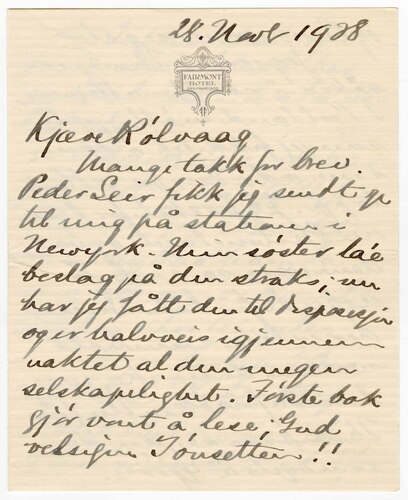 28. Novb 1928
FAIRMONT
HOTEL
SAN FRANCISCO
Kjære Rølvaag
Mange takk for brev.
Peder Seir fikk jeg sendt
til mig på stationen i
Newyork. Min søster la
beslag på den straks; nu
har jeg fått den til disposisjon
og er halvveis igjennem
uaktet al den megen
selskapelighet. Første bok
gjør vont å lese; Gud
velsigne Tönsetten!!